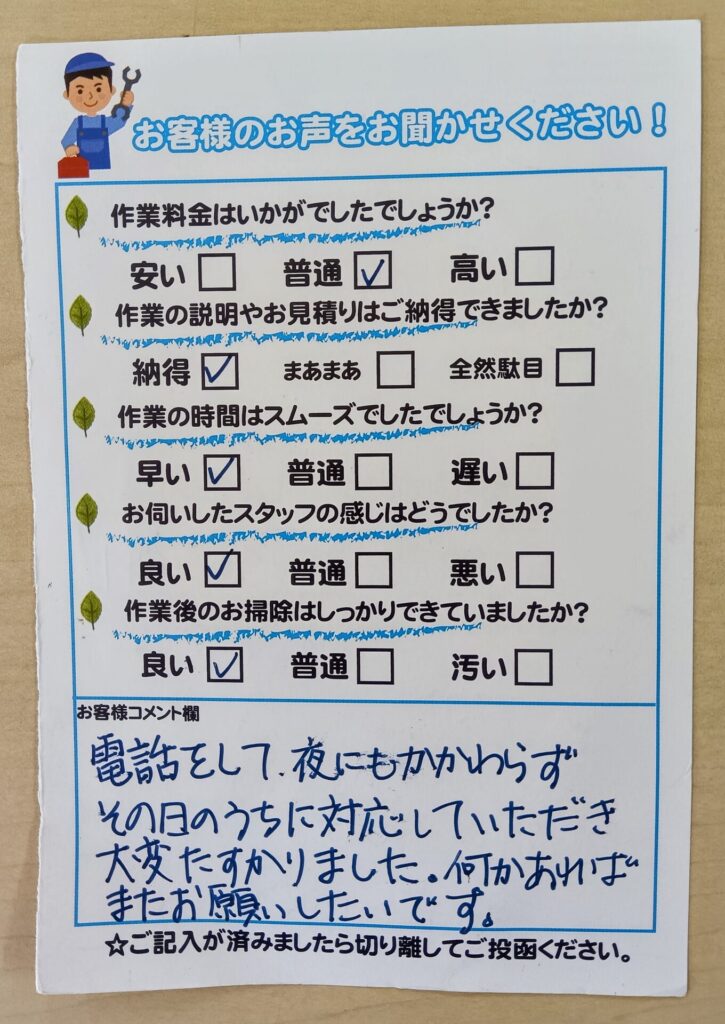 お客様のお声をお聞かせください！
作業料金はいかがでしたでしょうか？
安い □ 普通 ☑ 高い □
作業の説明やお見積りはご納得できましたか？
納得 ☑ まあまあ □ 全然駄目 □
作業の時間はスムーズでしたでしょうか？
早い ☑ 普通 □ 遅い □
お伺いしたスタッフの感じはどうでしたか？
良い ☑ 普通 □ 悪い □
作業後のお掃除はしっかりできていましたか？
良い ☑ 普通 □ 汚い □
お客様コメント欄
電話をして、夜にもかかわらず
その日のうちに対応していただき
大変たすかりました。何かあれば
またお願いしたいです。
☆ご記入が済みましたら切り離してご投函ください。